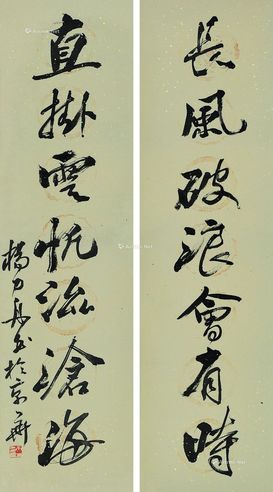 長風破浪會有時
直掛雲帆濟滄海
楊力舟书於京